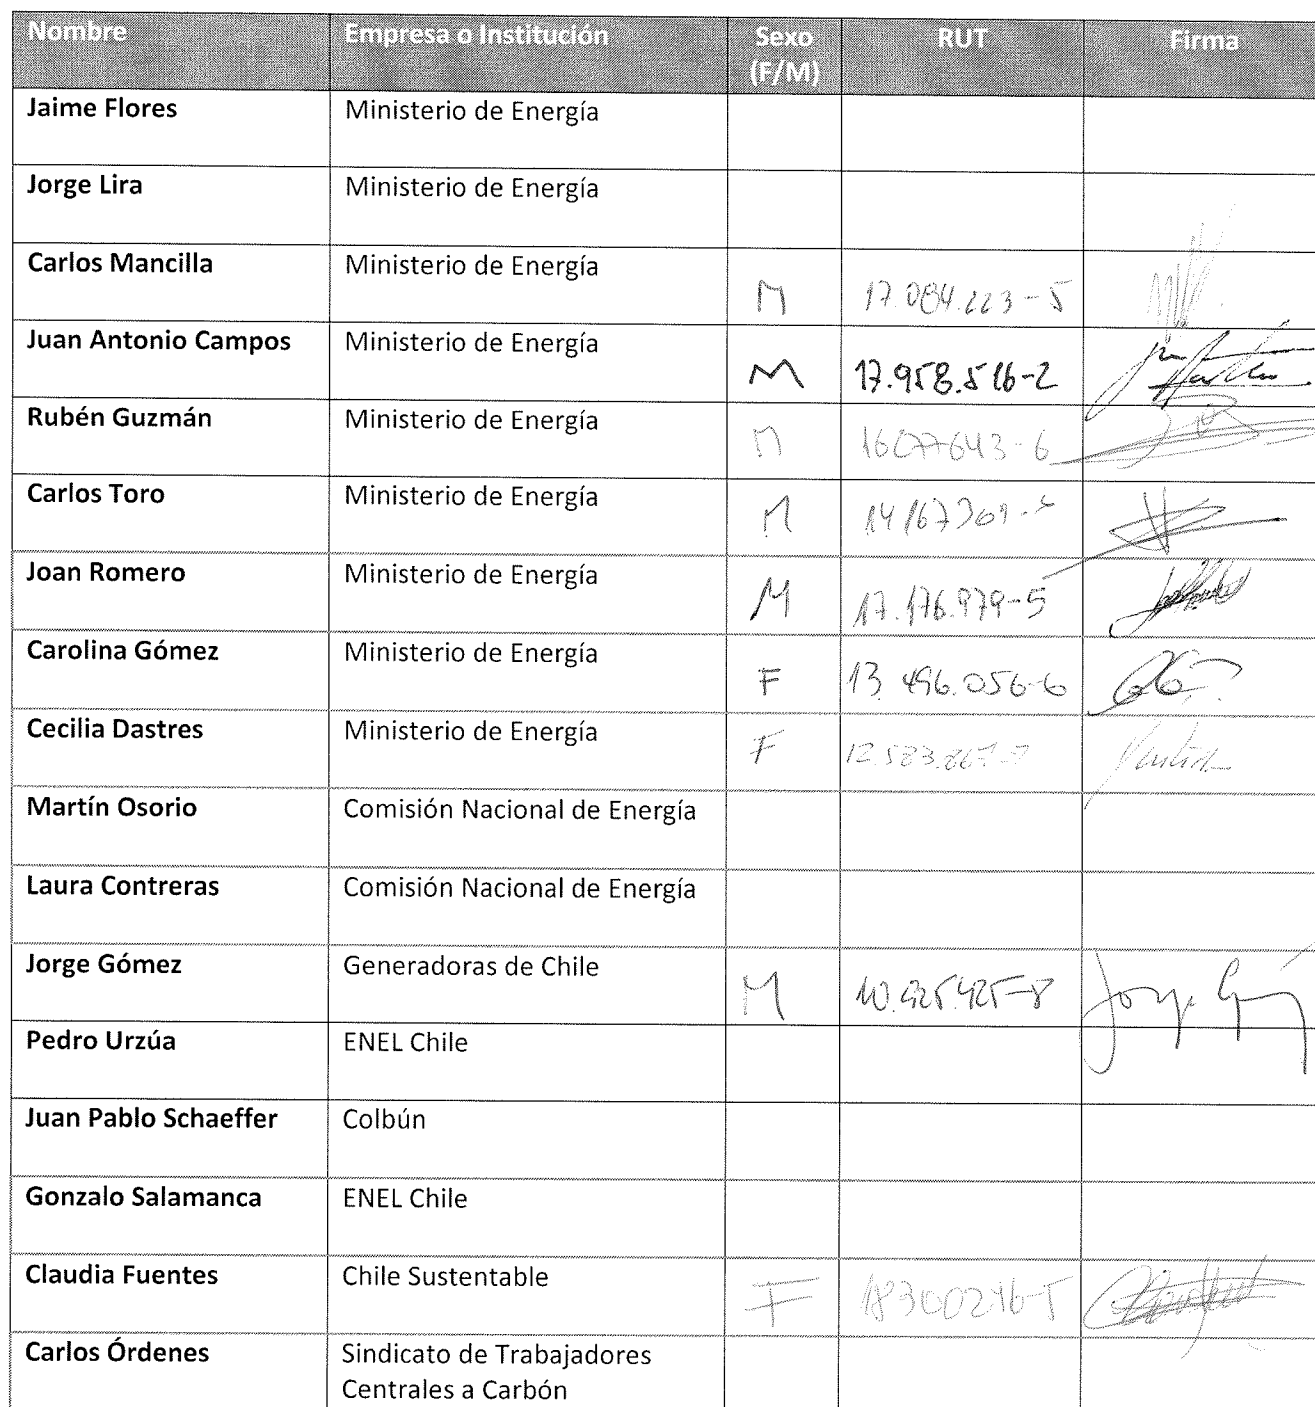 Nombre Empresa o Institución Sexo (F/M) RUT Firma
Jaime Flores Ministerio de Energía
Jorge Lira Ministerio de Energía
Carlos Mancilla Ministerio de Energía M 17.084.223-5
Juan Antonio Campos Ministerio de Energía M 17.958.516-2
Rubén Guzmán Ministerio de Energía M 16077643-6
Carlos Toro Ministerio de Energía M
Joan Romero Ministerio de Energía M 17.176.979-5
Carolina Gómez Ministerio de Energía F 13.496.056-6
Cecilia Dastres Ministerio de Energía F
Martín Osorio Comisión Nacional de Energía
Laura Contreras Comisión Nacional de Energía
Jorge Gómez Generadoras de Chile M Jorge
Pedro Urzúa ENEL Chile
Juan Pablo Schaeffer Colbún
Gonzalo Salamanca ENEL Chile
Claudia Fuentes Chile Sustentable F 18300246-5
Carlos Órdenes Sindicato de Trabajadores
Centrales a Carbón